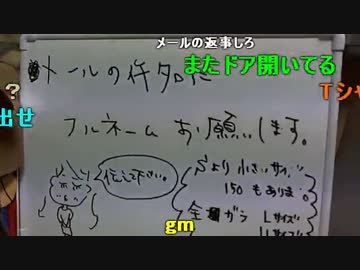 メールの返事しろ
またドア開いてる
Tシャ
?
出せ
メールの件名に
フルネームお願いします。
伝えて下さい。
Sより小さいサイズ
150もあります。
全柄ガラ Lサイズ
gm